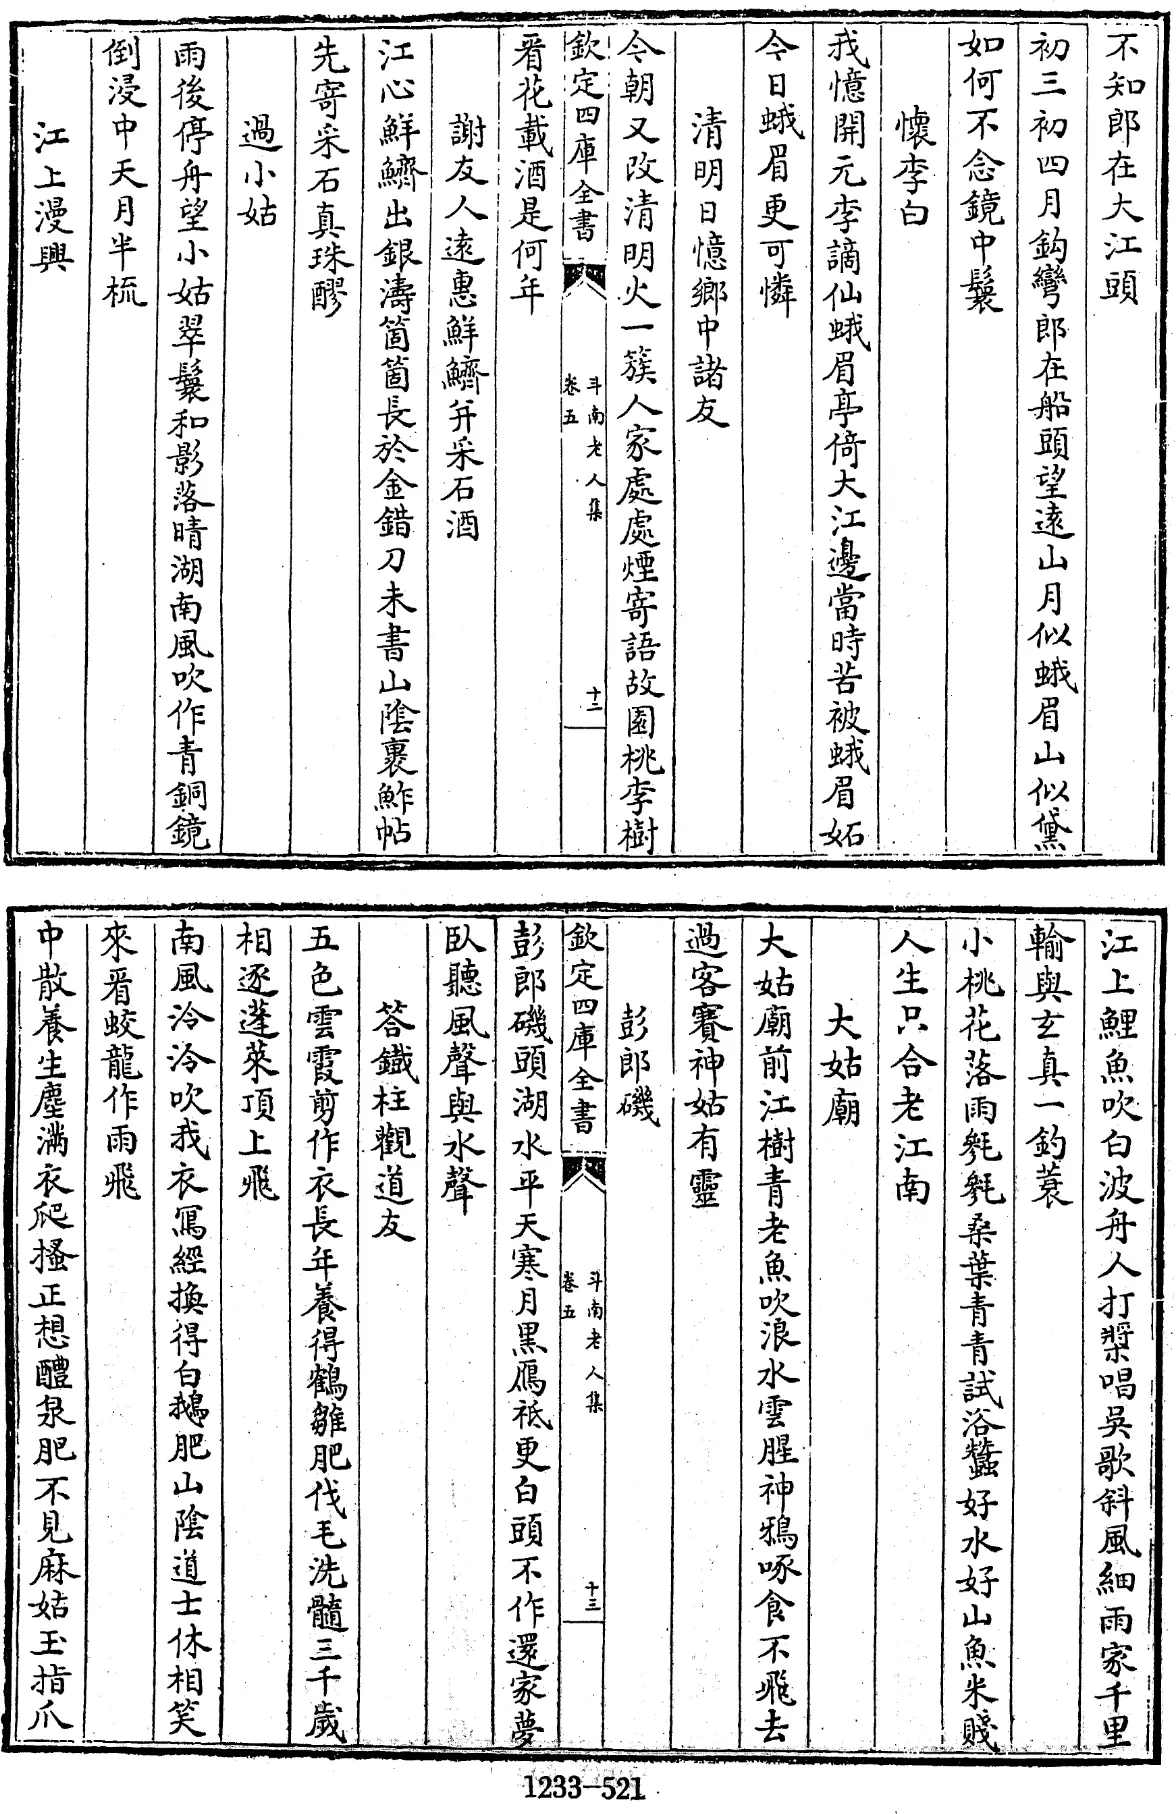 不知郎在大江頭
初三初四月鈎彎郎在船頭望遠山月似蛾眉山似黛
如何不念鏡中鬟
懷李白
我憶開元李謫仙蛾眉亭倚大江邊當時苦被蛾眉妬
今日蛾眉更可憐
清明日憶鄉中諸友
今朝又改清明火一簇人家處處煙寄語故園桃李樹
欽定四庫全書
斗南老人集
卷五
十二
看花載酒是何年
謝友人遠惠鮮鱭并采石酒
江心鮮鱭出銀濤箇箇長於金錯刀未書山陰裹鮓帖
先寄采石真珠醪
過小姑
雨後停舟望小姑翠鬟和影落晴湖南風吹作青銅鏡
倒浸中天月半梳
江上漫興
江上鯉魚吹白波舟人打槳唱吳歌斜風細雨家千里
輸與玄真一釣蓑
小桃花落雨毿毿桑葉青青試浴蠶好水好山魚米賤
人生只合老江南
大姑廟
大姑廟前江樹青老魚吹浪水雲腥神鴉啄食不飛去
過客賽神姑有靈
彭郎磯
欽定四庫全書
斗南老人集
卷五
十三
彭郎磯頭湖水平天寒月黑鴈祗更白頭不作還家夢
臥聽風聲與水聲
答鐵柱觀道友
五色雲霞剪作衣長年養得鶴雛肥伐毛洗髓三千歲
相逐蓬萊頂上飛
南風泠泠吹我衣寫經換得白鵝肥山陰道士休相笑
來看蛟龍作雨飛
中散養生塵滿衣爬搔正想醴泉肥不見麻姑玉指爪
1233-521